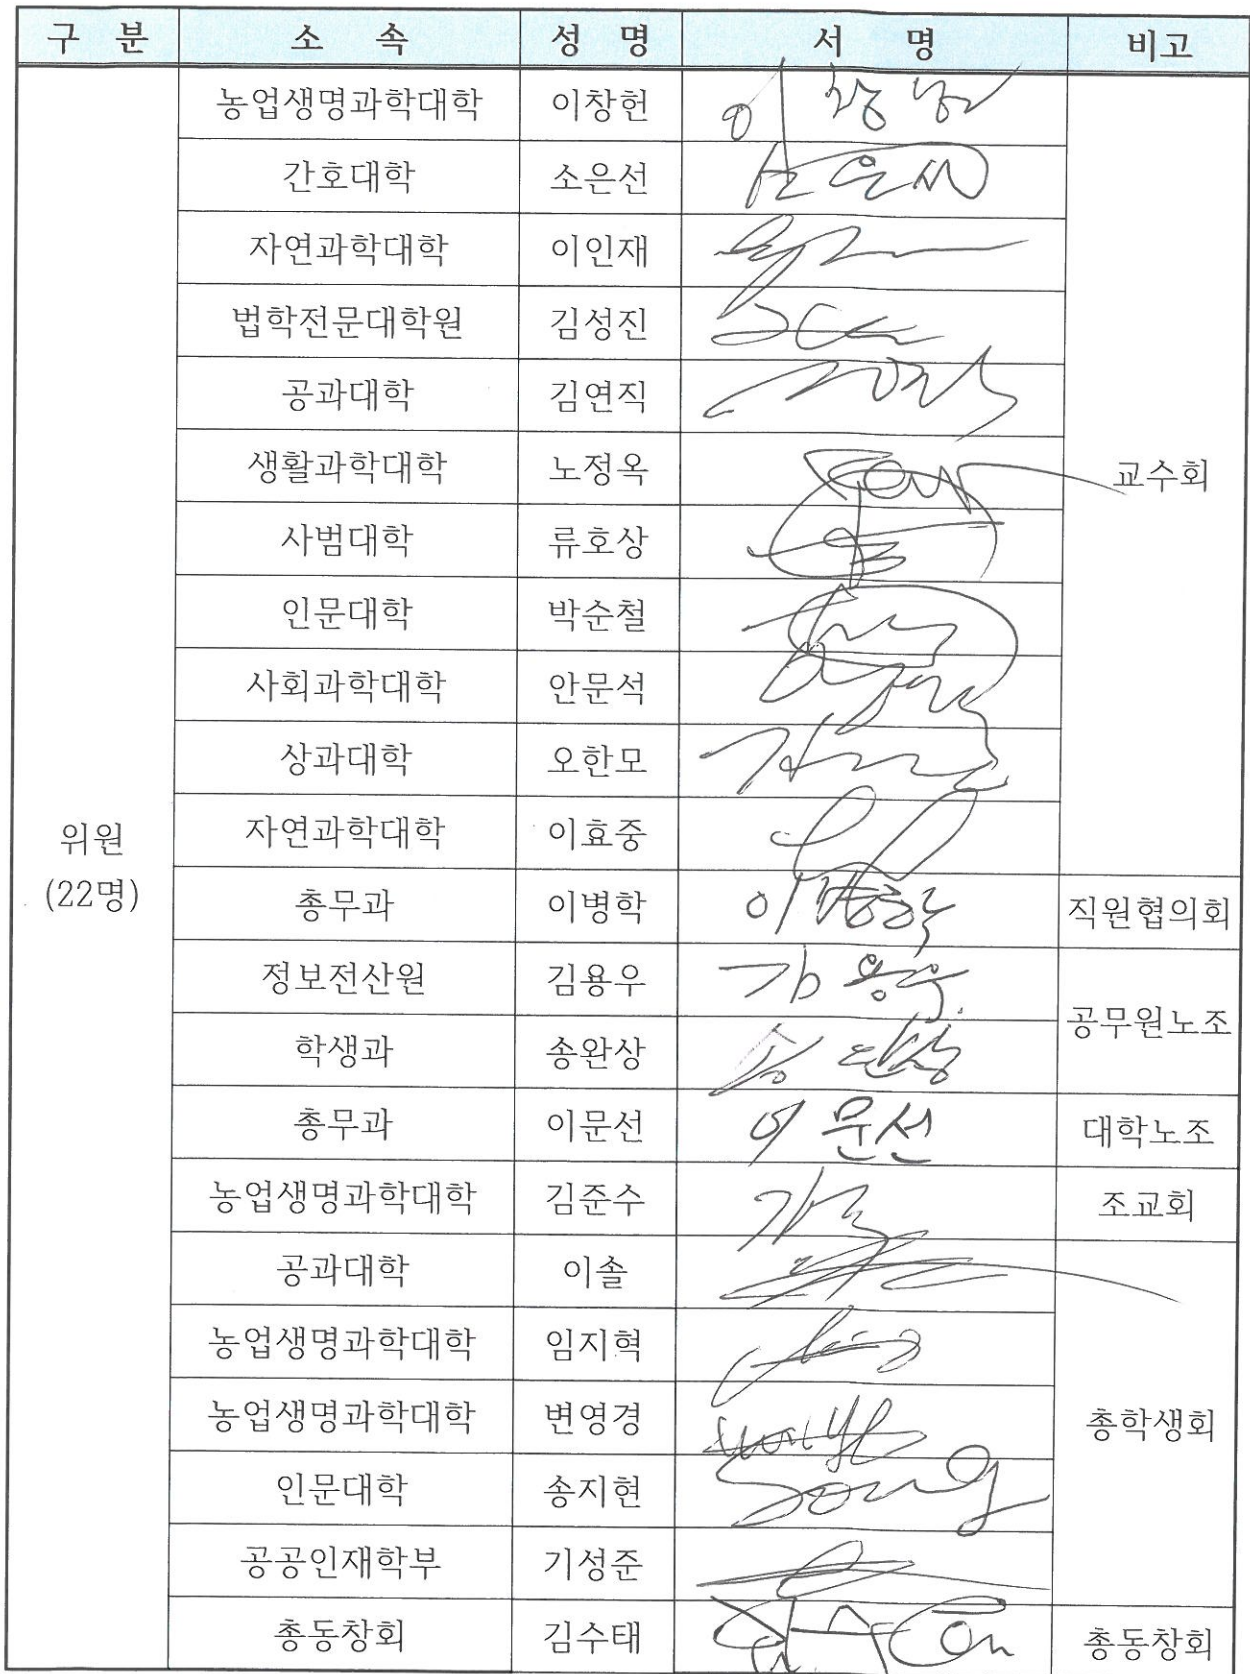 구 분 소 속 성 명 서 명 비고
농업생명과학대학 이창헌 이창헌
간호대학 소은선 소은선
자연과학대학 이인재
법학전문대학원 김성진
공과대학 김연직
생활과학대학 노정옥 교수회
사범대학 류호상
인문대학 박순철
사회과학대학 안문석
상과대학 오한모
자연과학대학 이효중
위원
(22명)
총무과 이병학 이병학 직원협의회
정보전산원 김용우 김용우
공무원노조
학생과 송완상 송완상
총무과 이문선 이문선 대학노조
농업생명과학대학 김준수 조교회
공과대학 이솔
농업생명과학대학 임지혁
농업생명과학대학 변영경 총학생회
인문대학 송지현 Song
공공인재학부 기성준
총동창회 김수태 총동창회